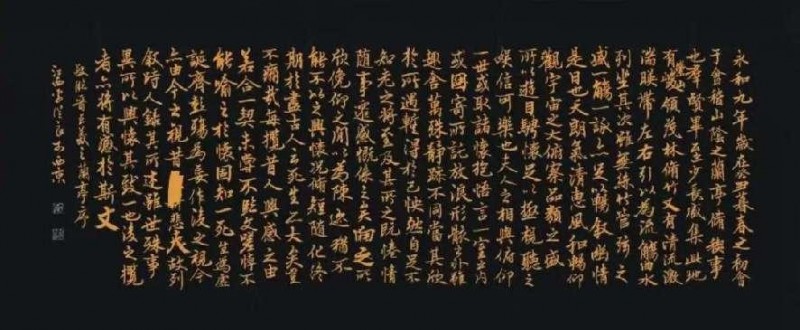 永和九年歲在癸丑暮春之初會
于會稽山陰之蘭亭脩稧事
也羣賢畢至少長咸集此地
有崇山峻領茂林脩竹又有清流激
湍暎帶左右引以為流觴曲水
列坐其次雖無絲竹管弦之
盛一觴一詠亦足以暢敘幽情
是日也天朗氣清惠風和暢仰
觀宇宙之大俯察品類之盛
所以遊目騁懷足以極視聽之
娛信可樂也夫人之相與俯仰
一世或取諸懷抱悟言一室之內
或因寄所託放浪形骸之外雖
趣舍萬殊靜躁不同當其欣
於所遇暫得於己怏然自足不
知老之將至及其所之既惓情
隨事遷感慨係之矣向之所
欣俛仰之閒以為陳迹猶不
能不以之興懷況脩短隨化終
期於盡古人云死生亦大矣豈
不痛哉每攬昔人興感之由
若合一契未嘗不臨文嗟悼不
能喻之於懷固知一死生為虛
誕齊彭殤為妄作後之視今
亦由今之視昔悲夫故列
敘時人錄其所述雖世殊事
異所以興懷其致一也後之攬
者亦將有感於斯文
敬臨晉王羲之蘭亭序